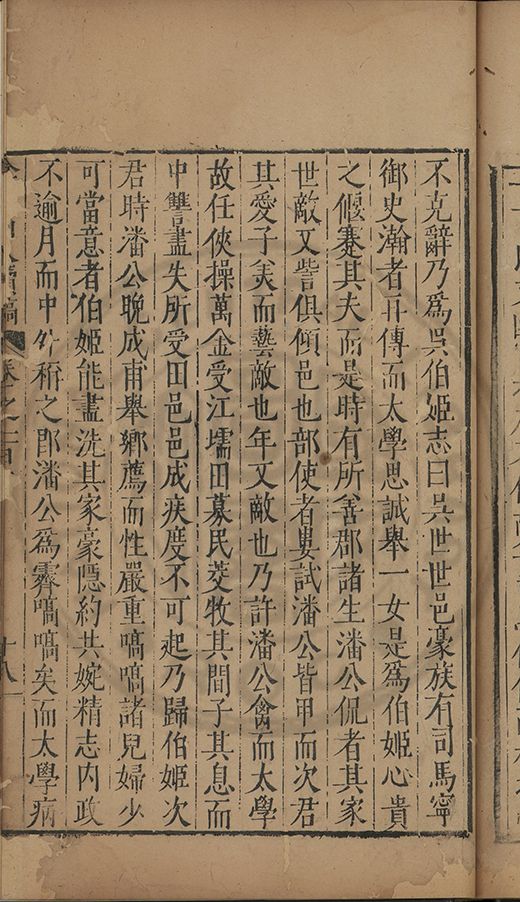 不克辭乃爲吳伯姬志曰吳世世邑豪族有司馬寧
御史瀚者再傳而太學思誠舉一女是爲伯姬心貴
之偃蹇其夫而是時有所善郡諸生潘公侃者其家
世敵又訾俱傾邑也部使者婁試潘公皆甲而次君
其愛子美而藝敵也年又敵也乃許潘公禽而太學
故任俠操萬金受江壖田募民茭牧其間子其息而
中讐盡失所受田邑邑成疾度不可起乃歸伯姬次
君時潘公晚成甫舉鄉薦而性嚴重嗃嗃諸兒婦少
可當意者伯姬能盡洗其家豪隱約共婉精志内政
不逾月而中外稱之卽潘公爲霽嗃嗃矣而太學病
稿 卷之一
十八